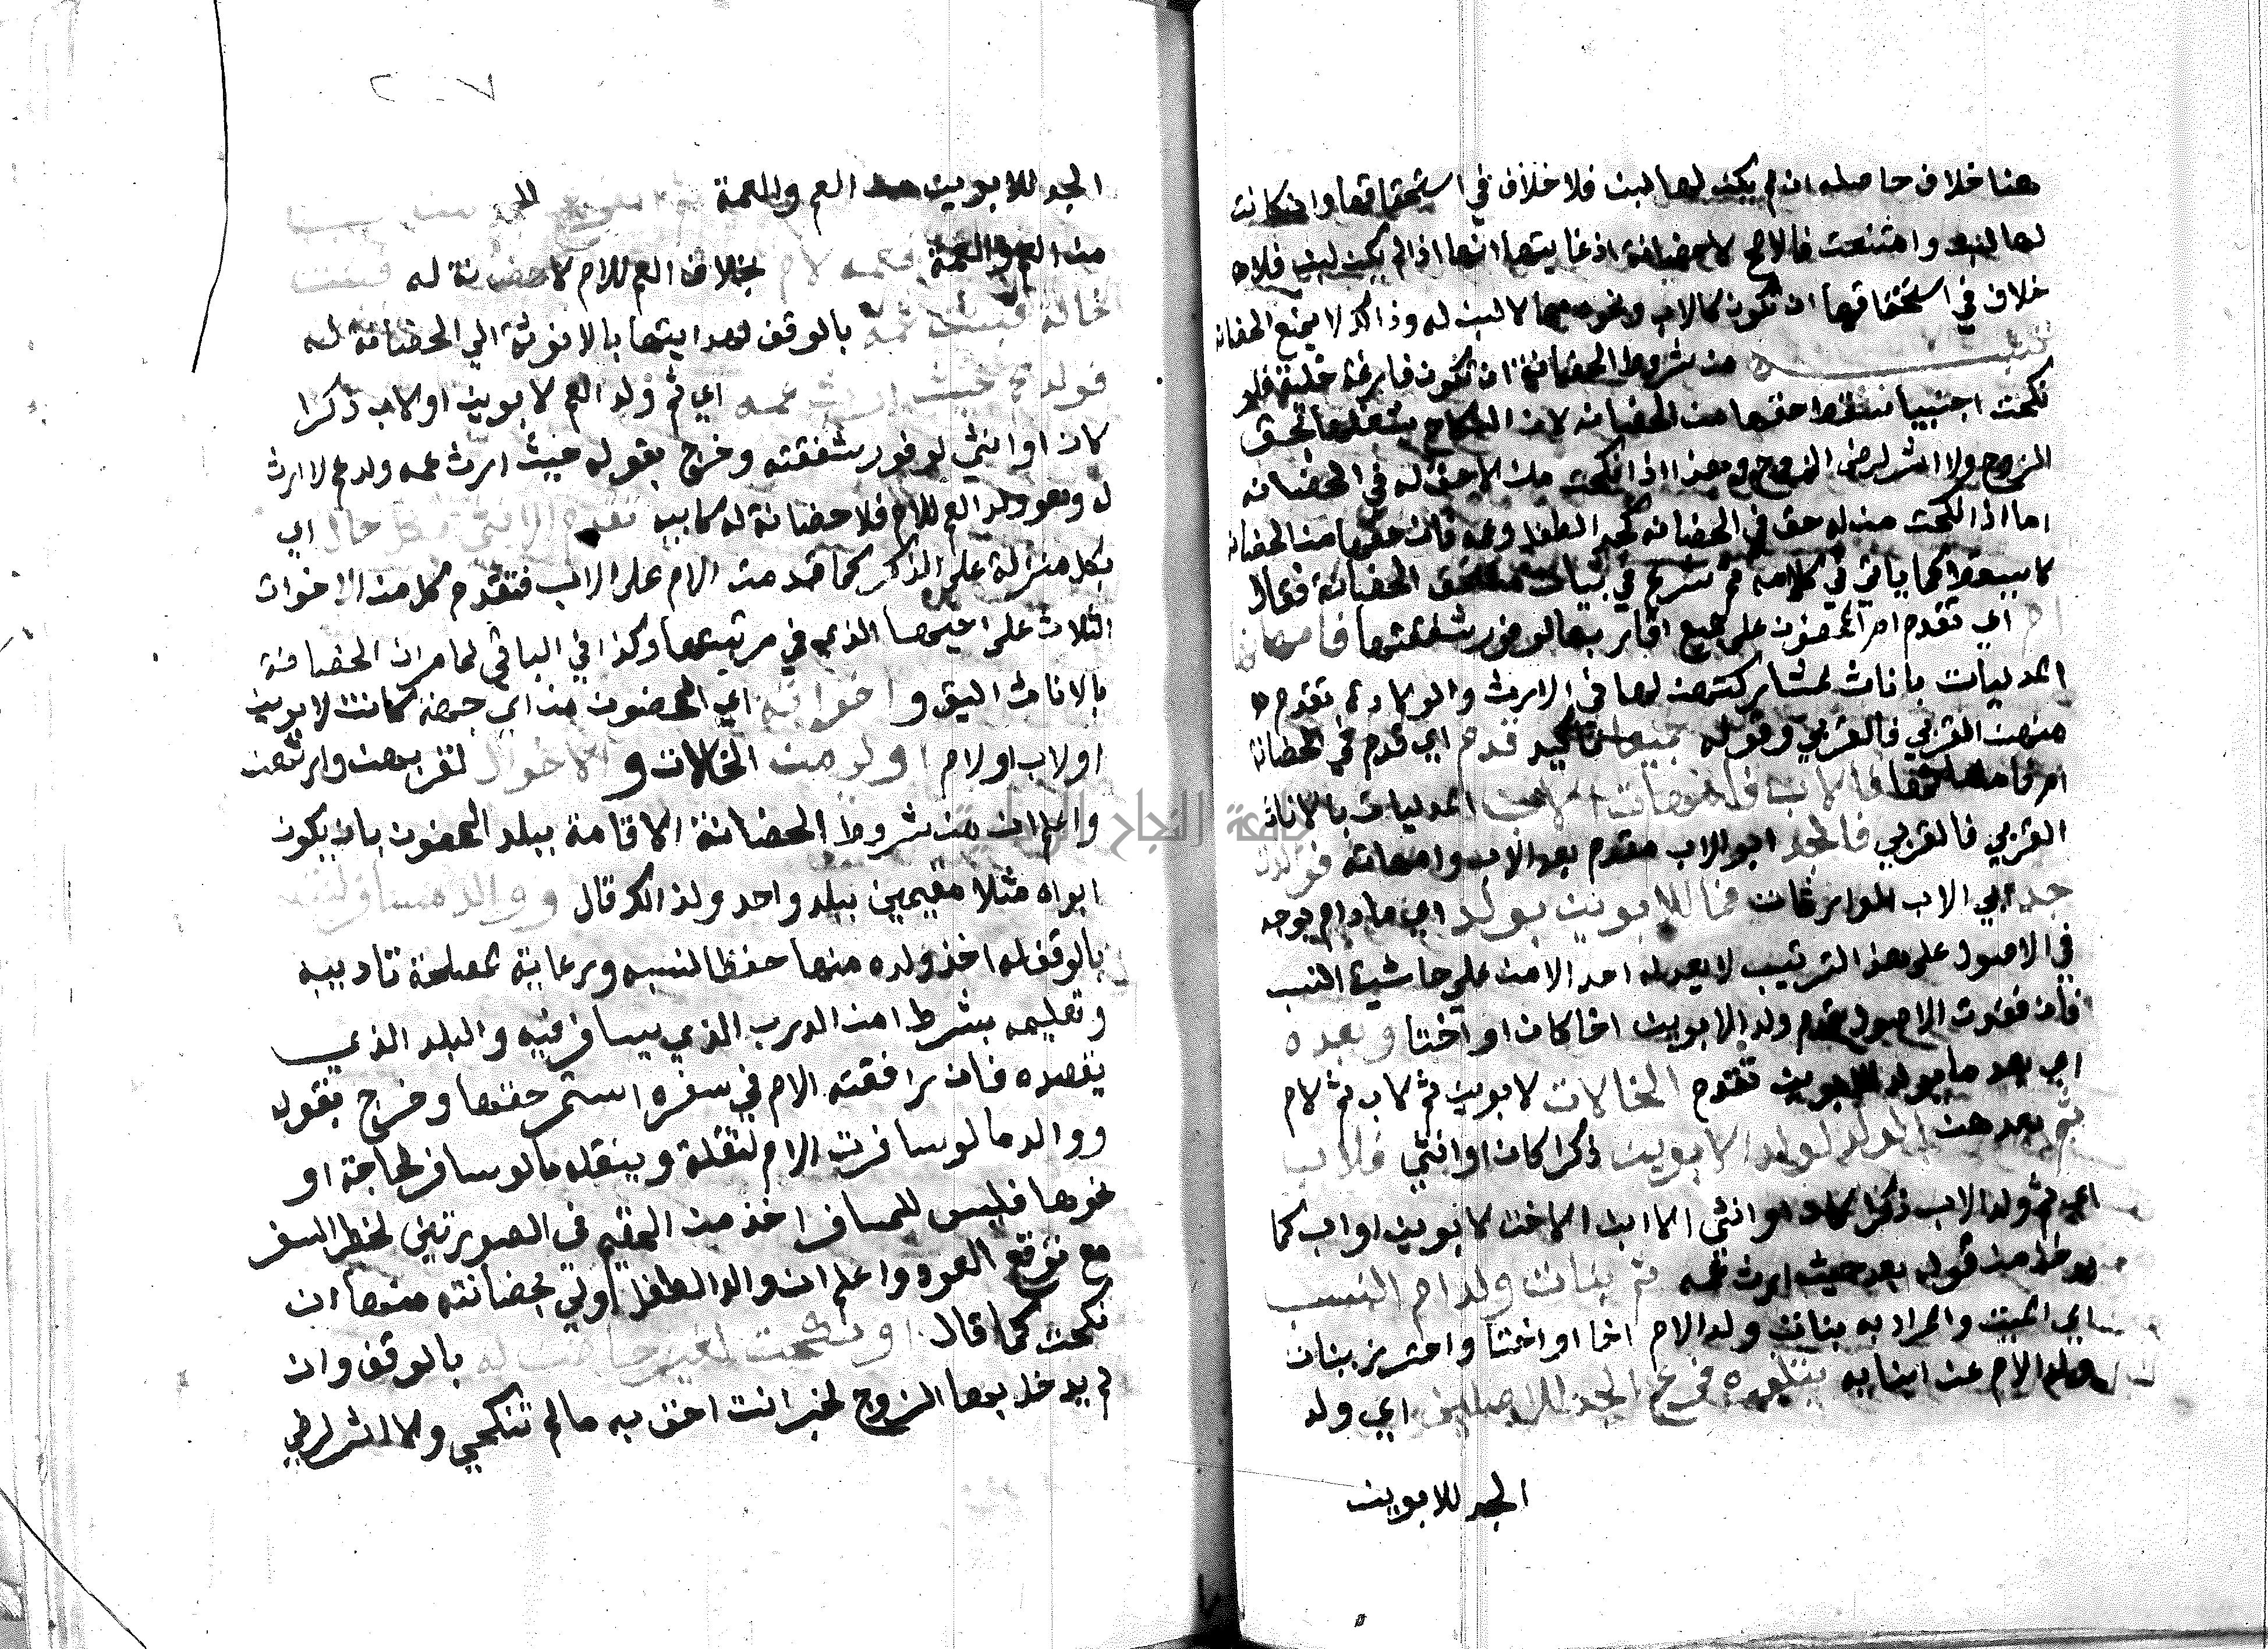 هنا خلاف حاصله ان لم يكن لها لبن فلا خلاف في استحقاقها وان كانت
لها لبن وامتنعت فالاصح لا حضانة اذ غايتها انها اذا لم يكن لبن فلا
خلاف في استحقاقها ان تكون كالاب ونحوه مما لا لبن له وذالك لا يمنع الحضانه
تنبيه من شروط الحضانة ان تكون فارغة خلية فلو
نكحت اجنبيا سقط حقها من الحضانه لان النكاح يشغلها بحق
الزوج ولا اثر لرضى الزوج وهذا اذا نكحت من لا حق له في الحضانه
اما اذا نكحت من له حق في الحضانه كجد الطفل وعمه فان حقها من الحضانه
لا يسقط كما ياتي في كلامه ثم شرع في بيان مستحق الحضانة فقال
ام اي تقدم ام المحضون على جميع اقاربها لوفور شفقتها فامهاتها
المدليات باناث لمشاركتهن لها في الارث والولادة تقدم
منهن القربي فالقربي وقوله جميعا تاكيد قدم اي قدم في الحضانة
ام فامهاتها فالاب فامهات الاب المدليات بالاناث
القربي فالقربي فالجد ابو الاب مقدم بعد الاب وامهاته فوالدات
جد ابي الاب الوارثات فما للابوين يولد اي ما دام يوجد
في الاصول على هذا الترتيب لا يعدله احد الا من على حاشية النسب
فان فقدت الاصول قدم ولد الابوين اخا كان او اختا وبعده
اي بعد ما يولد للابوين تقدم الخالات لابوين ثم لاب ثم لام
ثم بعدهن الولد لولد الابوين ذكرا كان او انثي فلاب
اي ثم ولد الاب ذكرا كان او انثي الا ابن الاخت لابوين او اب كما
يوخذ من قوله بعد حيث ارث عمه ثم بنات ولد ام النسب
اي الميت والمراد به بنات ولد الام اخا او اختا واحترز ببنات
ولد الام عن ابنايه يتلوه فرع الجد للاصلين اي ولد
الجد للابوين
٢٠٧
الجد للابوين من العم والعمة
من العم والعمة فعمه لام بخلاف العم للام لا حضانة له فبنت
خالة فبنت عمة بالوقف لهدايتها بالانوثة الي الحضانة له
فولد عم حيث ارث عمه اي ثم ولد العم لابوين او لاب ذكرا
كان او انثي لوفور شفقته وخرج بقوله حيث ارث عمه ولد عم لا ارث
له وهو ولد العم للام فلا حضانة له كابيه تقدم الانثي بكل حال اي
بكل منزلة على الذكر كما قدمت الام على الاب فتقدم كل من الاخوات
الثلاث على اخيها الذي في مرتبتها وكذا في الباقي لما مر ان الحضانة
بالاناث اليق واخواته اي المحضون من اي جهة كانت لابوين
او لاب او لام اولو من الخالات والاخوال لقربهن وارثهن
واعلم ان من شروط الحضانة الاقامة ببلد المحضون بان يكون
ابواه مثلا مقيمين ببلد واحد ولذالك قال ووالد مسافر لنقله
بالوقف له اخذ ولده منها حفظا لنسبه ورعاية لمصلحة تاديبه
وتعليمه بشرط امن الدرب الذي يسافر فيه والبلد الذي
يقصده فان رافقته الام في سفره استمر حقها وخرج بقوله
ووالد ما لو سافرت الام لنقلة وبنقله ما لو سافر لحاجة او
نحوها فليس للمسافر اخذ من المقيم في الصورتين لخطر السفر
مع توقع العود واعلم ان والد الطفل اولي بحضانته منها ان
نكحت كما قال او نكحت لغير حاضن له بالوقف وان
لم يدخل بها الزوج لخبر انت احق به ما لم تنكحي ولا اثر لرضي